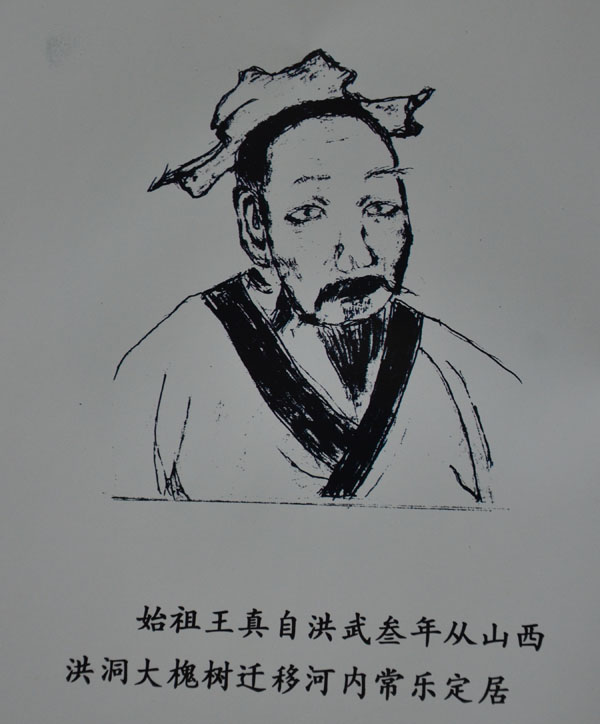 始祖王真自洪武叁年从山西
洪洞大槐树迁移河内常乐定居